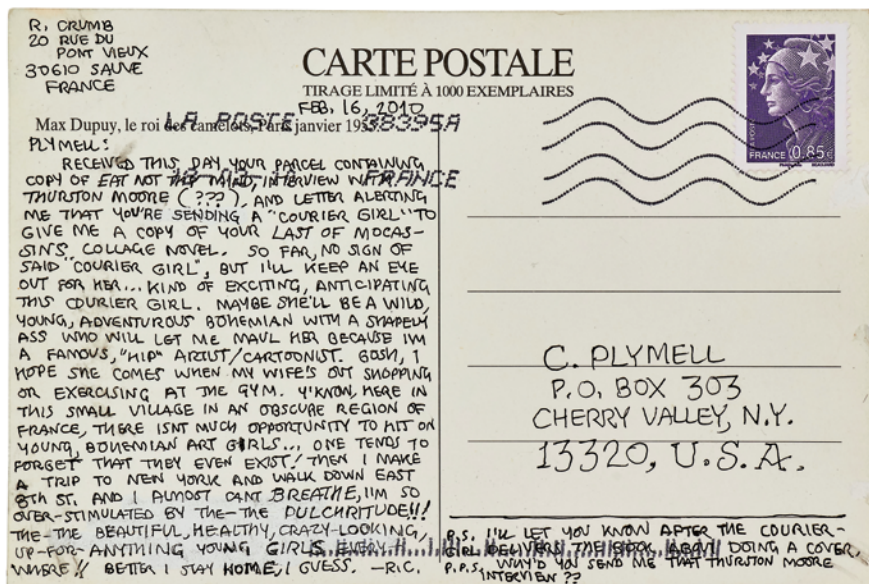 R. CRUMB
20 RUE DU
PONT VIEUX
30610 SAUVE
FRANCE
CARTE POSTALE
TIRAGE LIMITÉ À 1000 EXEMPLAIRES
FEB. 16, 2010
LA POSTE 38395A
Max Dupuy, le roi des camelots, Paris janvier
FRANCE
FRANCE 0.85€
PLYMELL:
RECEIVED THIS DAY YOUR PARCEL CONTAINING
COPY OF EAT NOT THY MIND, INTERVIEW WITH
THURSTON MOORE (???), AND LETTER ALERTING
ME THAT YOU'RE SENDING A "COURIER GIRL" TO
GIVE ME A COPY OF YOUR LAST OF MOCAS-
SINS COLLAGE NOVEL. SO FAR, NO SIGN OF
SAID "COURIER GIRL", BUT I'LL KEEP AN EYE
OUT FOR HER... KIND OF EXCITING, ANTICIPATING
THIS COURIER GIRL. MAYBE SHE'LL BE A WILD,
YOUNG, ADVENTUROUS BOHEMIAN WITH A SHAPELY
ASS WHO WILL LET ME MAUL HER BECAUSE I'M
A FAMOUS, "HIP" ARTIST/CARTOONIST. GOSH, I
HOPE SHE COMES WHEN MY WIFE'S OUT SHOPPING
OR EXERCISING AT THE GYM. Y'KNOW, HERE IN
THIS SMALL VILLAGE IN AN OBSCURE REGION OF
FRANCE, THERE ISNT MUCH OPPORTUNITY TO HIT ON
YOUNG, BOHEMIAN ART GIRLS... ONE TENDS TO
FORGET THAT THEY EVEN EXIST! THEN I MAKE
A TRIP TO NEW YORK AND WALK DOWN EAST
8TH ST. AND I ALMOST CANT BREATHE, I'M SO
OVER-STIMULATED BY THE-THE PULCHRITUDE!!!
THE-THE BEAUTIFUL, HEALTHY, CRAZY-LOOKING,
UP-FOR-ANYTHING YOUNG GIRLS EVERY-
WHERE!! BETTER I STAY HOME, I GUESS. —R.C.
C. PLYMELL
P.O. BOX 303
CHERRY VALLEY, N.Y.
13320, U.S.A.
P.S. I'LL LET YOU KNOW AFTER THE COURIER-
GIRL DELIVERS THE BOOK, ABOUT DOING A COVER.
P.P.S. WHY'D YOU SEND ME THAT THURSTON MOORE
INTERVIEW ??